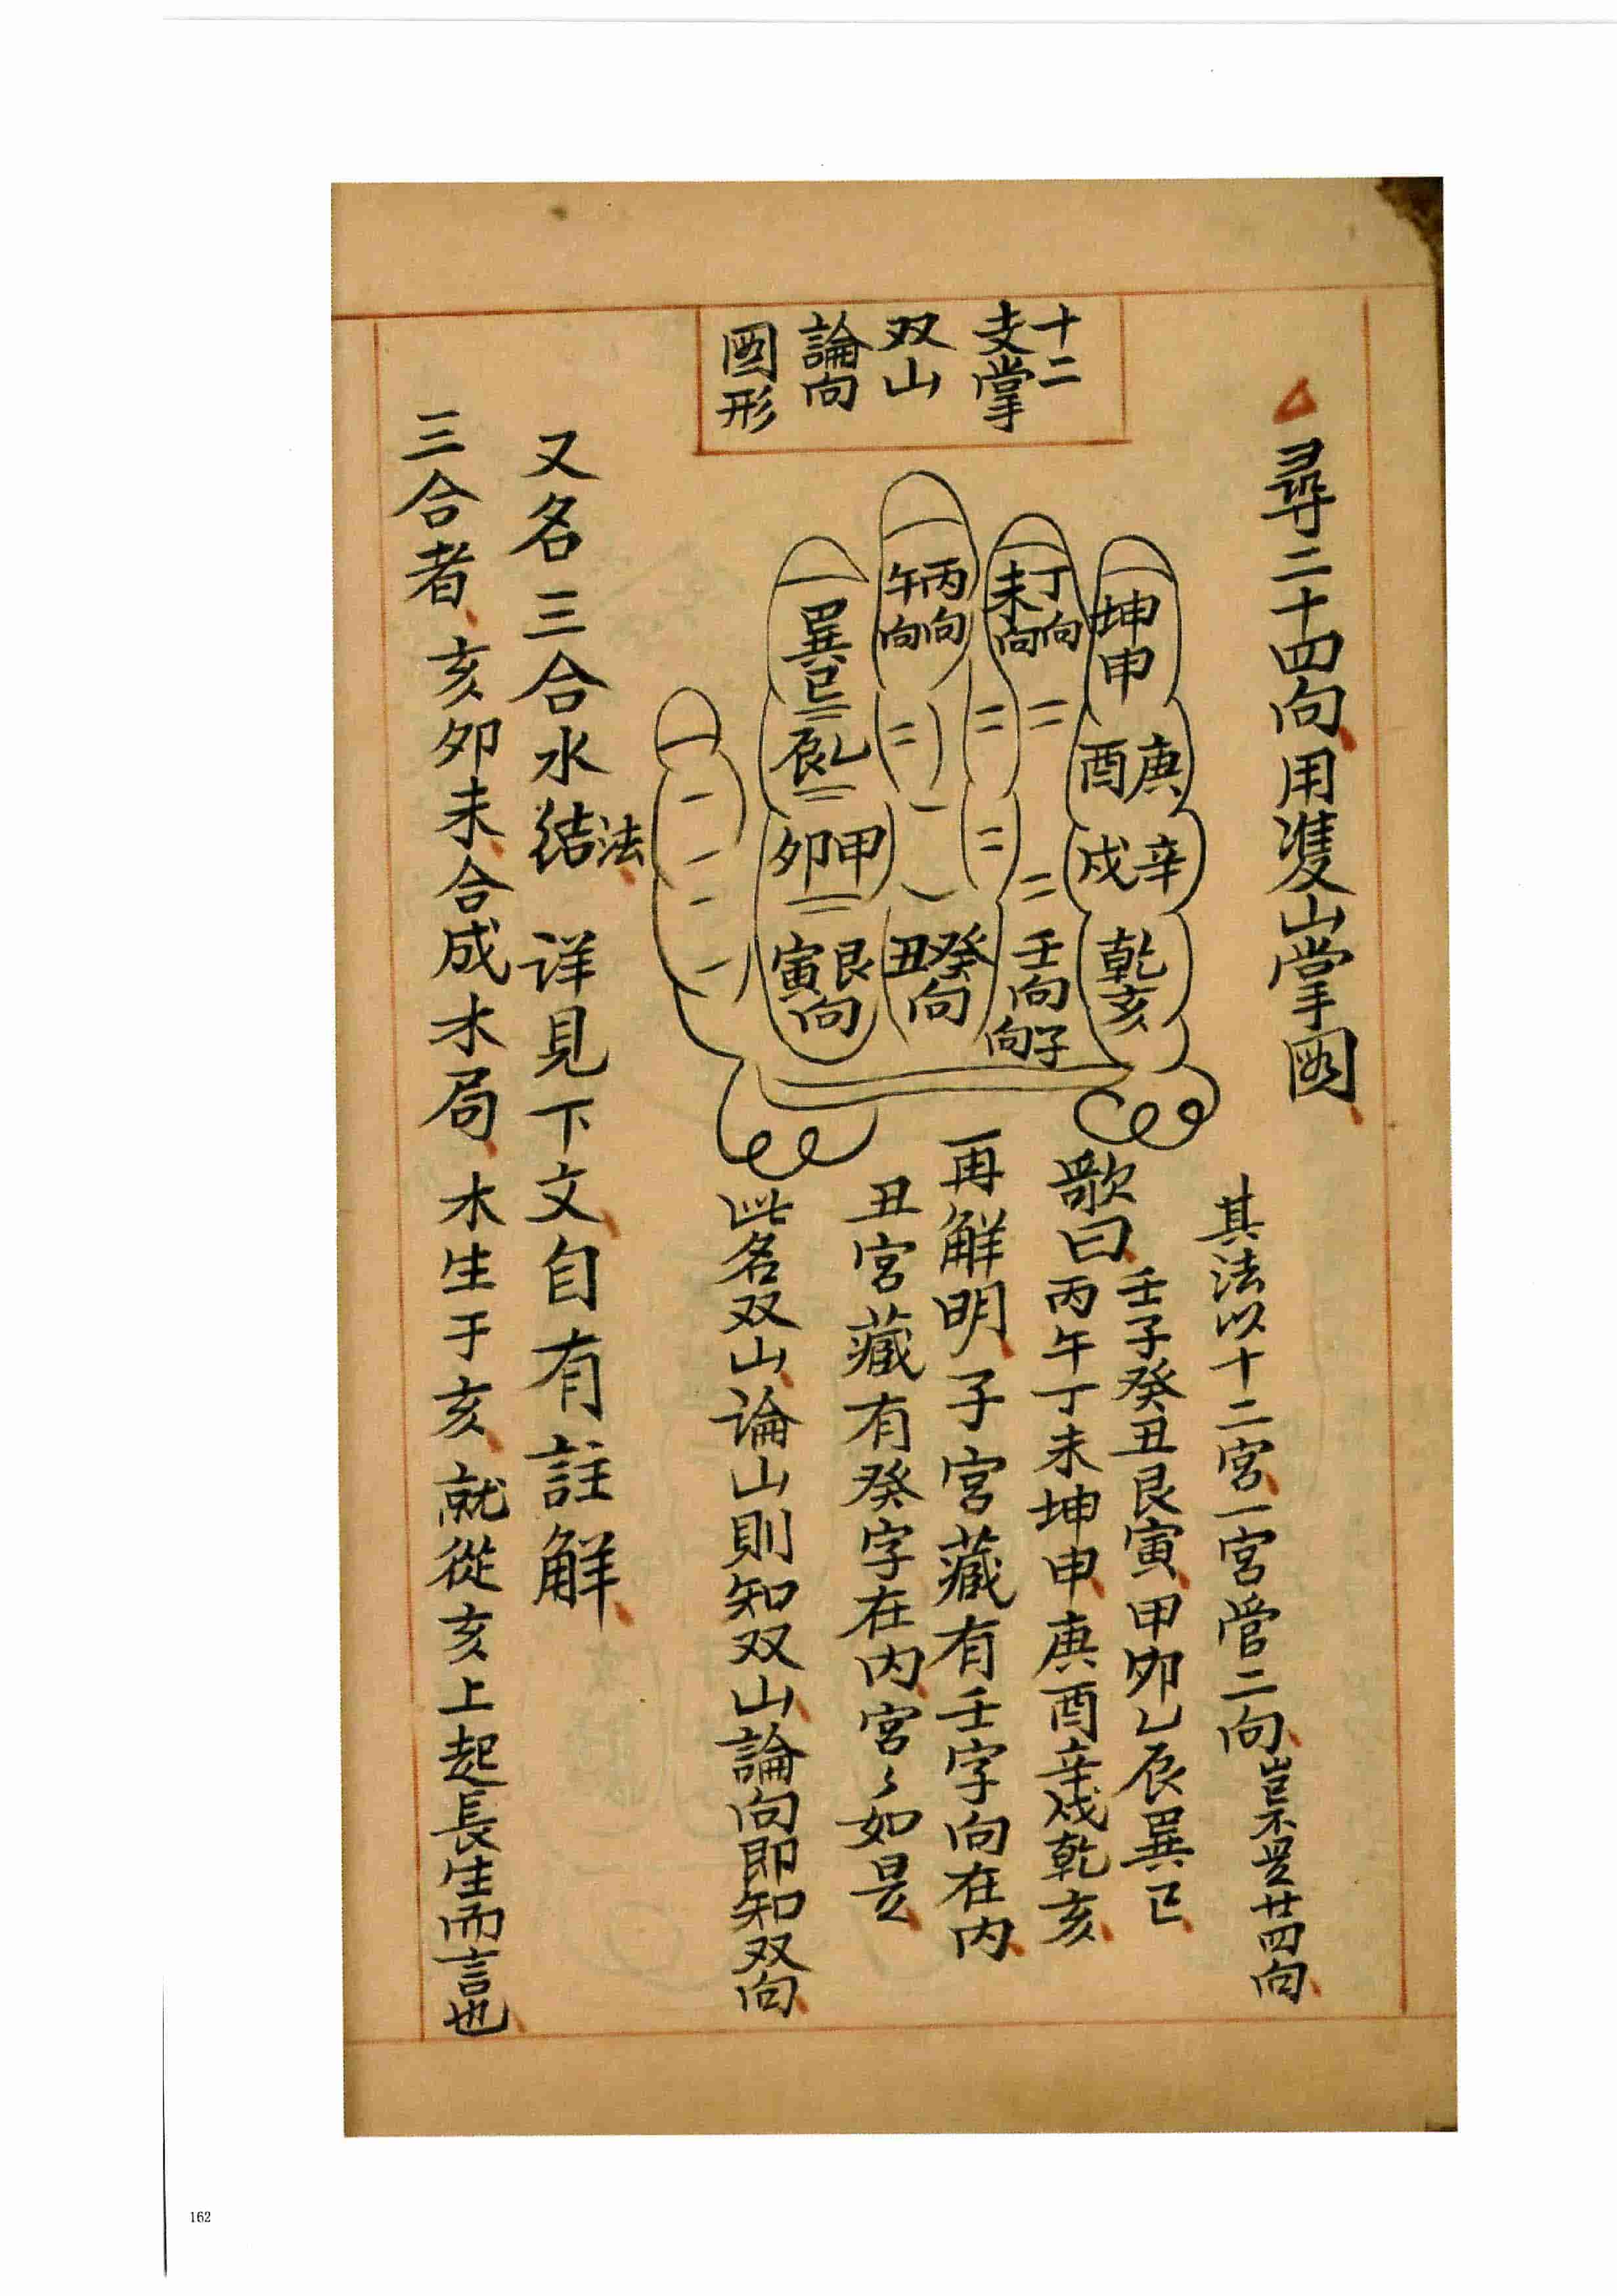 尋二十四向用雙山掌圖
其法以十二宮一宮管二向豈不是廿四向
十二
支掌
双山
論向
圖形
坤申
庚酉
辛戌
乾亥
丁向
未向
丙向
午向
巽巳
乙辰
甲卯
艮寅向
癸丑向
壬向
子向
歌曰
壬子癸丑艮寅甲卯乙辰巽巳
丙午丁未坤申庚酉辛戌乾亥
再解明子宮藏有壬字向在内
丑宮藏有癸字在内宮〻如是
此名双山論山則知双山論向即知双向
又名三合水結法 详見下文自有註解
三合者亥卯未合成木局木生于亥就從亥上起長生而言也
162